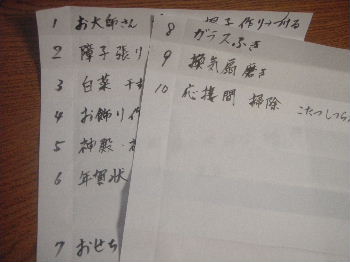 1 お大師さん
2 障子張り
3 白菜
4 お飾り作
5 神殿・
6 年賀状
7 おせち
8 団子作り
ガラスふき
9 換気扇磨き
10 応接間 掃除 こたつしつらえ